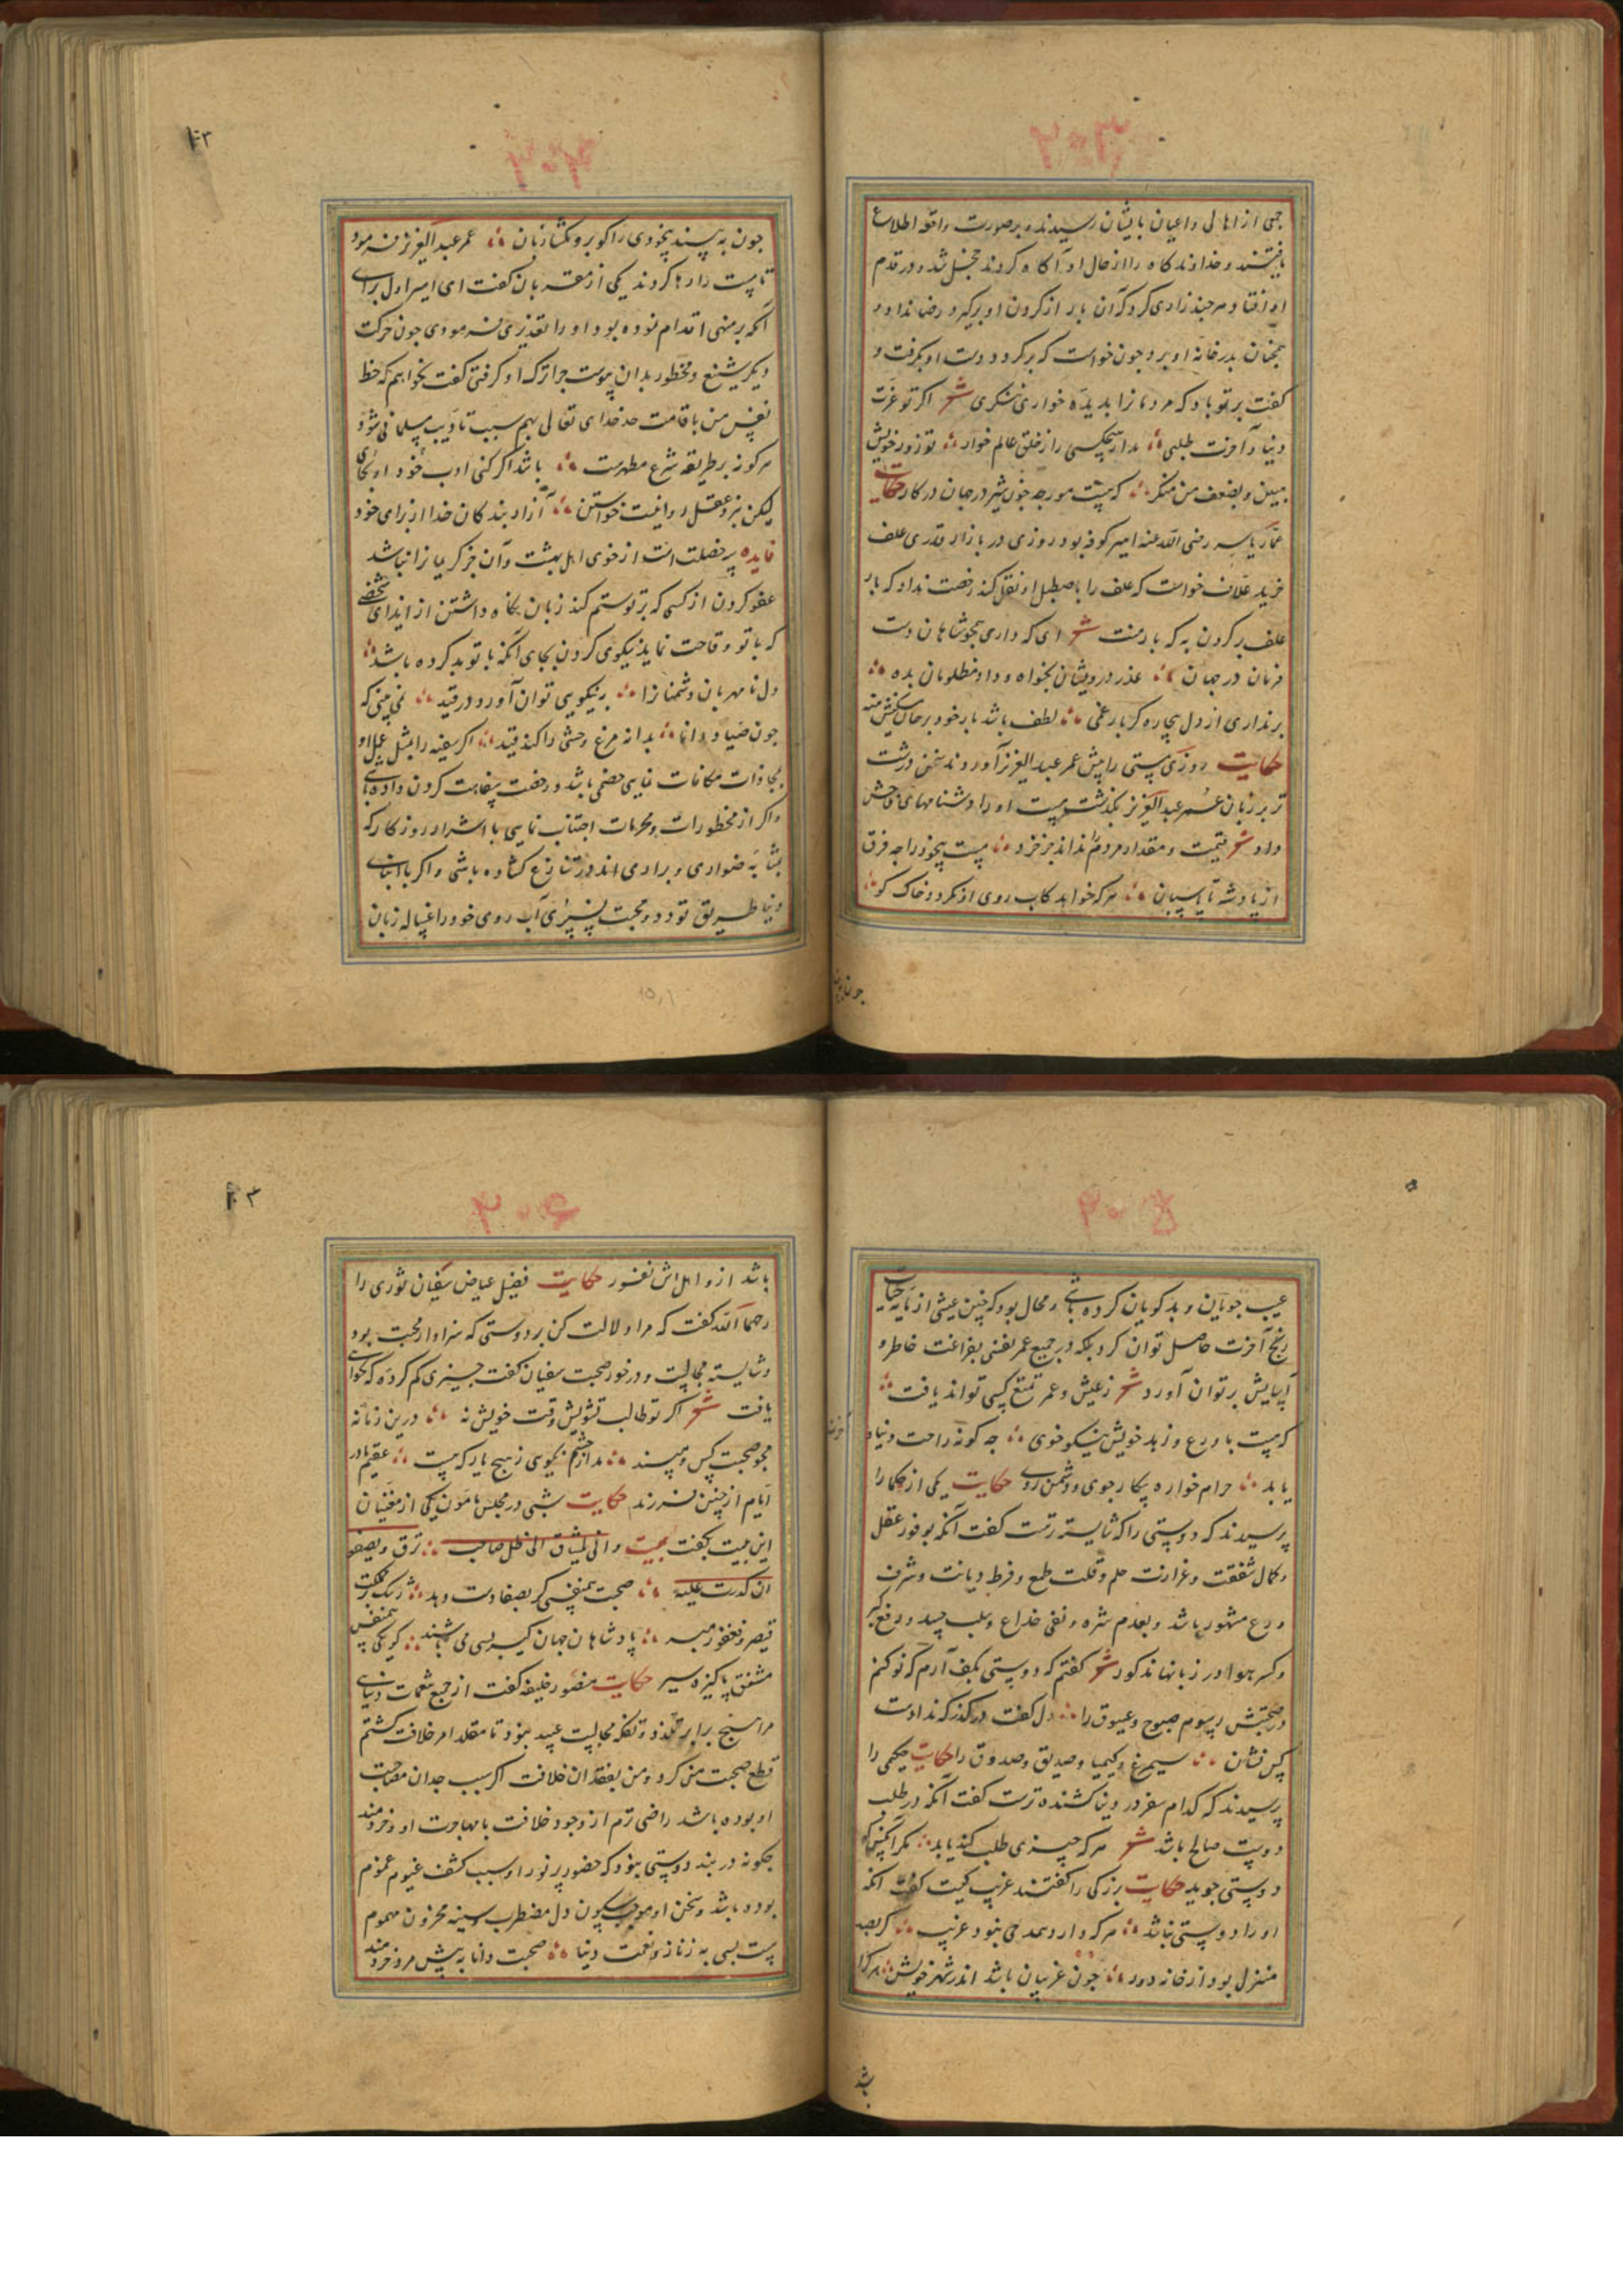 ۲۰۳
جمی از اهالی و اعیان بایشان رسیدند و برصورت واقعه اطلاع
یافتند و خداوند کاه را از حال او آکاه کردند خجل شد و در قدم
او افتاد و هرچند زاری کرد که آن بار از کردن او برکیرد رضا نداد و
همچنان بدر خانه او برد و چون خواست که برکردد دست او بکرفت و
کفت برتو باد که مردمانرا بدیده خواری ننکری شعر اکر تو عزت
دنیا و آخرت طلبی مدار هیچکسی را ز خلق عالم خوار تو زور خویش
مبین و بضعف من منکر که هست مورچه چون شیر در جهان در کار حکایت
عمار یاسر رضی الله عنه امیر کوفه بود روزی در بازار قدری علف
خرید علاف خواست که علف را باصطبل او نقل کند رخصت نداد که بار
علف بر کردن به که بار منت شعر ای که داری همچو شاهان دست
فرمان در جهان عذر درویشان بخواه و داد مظلومان بده
برنداری از دل بیچاره کر بار غمی لطف باشد بار خود بر جان مسکینش منه
حکایت روزی مستی را پیش عمر عبد العزیز آوردند سخن درشت
تر بر زبان عمر عبد العزیز بکذشت مست او را دشنامهای فاحش
داد شعر قیمت و مقدار مردم را نداند جز خرد مست بیخود را چه فرق
از پادشه تا پاسبان هرکه خواهد کاب روی از نکردد خاک کو
۲۰۴
چون به بیند بیخودی را کو برو مکشا زبان عمر عبد العزیز فرمود
تا مست را رها کردند یکی از مقربان کفت ای امیر اول برای
آنکه برمنهی اقدام نموده بود او را تعذیری فرمودی چون حرکت
دیکر شنیع و محظور بدان پیوست چرا ترک او کرفتی کفت نخواهم که حظ
نفس من باقامت حد خدای تعالی بهم سبب تادیب مسلمانی شود
هرکونه بر طریقه شرع مطهرست باشد اکر کنی ادب خود او بجای
لیکن بنزد عقل روا نیست خواستن آزار بندکان خدا از برای خود
فایده سه خصلت است از خوی اهل بهشت و آن جز کریمانرا نباشد
عفو کردن از کسی که بر تو ستم کند زبان نکاه داشتن از ایذای شخصی
که با تو وقاحت نماید نیکویی کردن بجای آنکه با تو بد کرده باشد
دل نامهربان دشمنانرا بنیکویی توان آورد در قید نمی بینی که
چون صیاد دانا بدانه مرغ وحشی را کند قید اکر سفیه را بمثل عمل او
مجازات مکافات نمایی خصمی باشد و رخصت سفاهت کردن داده باشی
و اکر از محظورات و محرمات اجتناب نمایی با اشرار روزکار که
بمثابه ضواری و براری اند در تنازع کشاده باشی و اکر با ابنای
دنیا طریق تودد و محبت نسپری آب روی خود را غساله زبان
۲۰۵
عیب جویان و بدکویان کرده باشی و محال بود که چنین عیشی از مایه حیات
رنج آخرت حاصل توان کرد بلکه در جمیع عمر نفسی بفراغت خاطر و
آسایش بر توان آورد شعر ز عیش و عمر تمتع کسی تواند یافت
که هست با ورع و زهد خویش نیکو خوی چه کونه راحت دنیا
یابد حرام خواره پیکار جوی و دشمن روی حکایت یکی از حکما را
پرسیدند که دوستی را که شایسته ترست کفت آنکه بوفور عقل
و کمال شفقت و غزارت حلم و قلت طمع و فرط دیانت و شرف
ورع مشهور باشد و بعدم شره و نفی خداع و سلب حسد و رفع کبر
و کسر هوا در زبانها مذکور شعر کفتم که دوستی بکف آرم که نو کنم
در صحبتش رسوم صبوح و غبوق را دل کفت درکذر که ندادست
کس نشان سیمرغ و کیمیا و صدیق و صدوق را حکایت حکیمی را
پرسیدند که کدام سفر در دنیا کشنده ترست کفت آنکه در طلب
دوست صالح باشد شعر هرکه چیزی طلب کند یابد مکر آنکس که
دوستی جوید حکایت بزرکی را کفتند غریب کیست کفت آنکه
او را دوستی نباشد هرکه دارد همدمی نبود غریب کر بصد
منزل بود از خانه دور چون غریبان باشد اندر شهر خویش هرکرا
باشد
۲۰۶
باشد از و اهل انس نفور حکایت فضیل عیاض سفیان ثوری را
رحمها الله کفت که مرا دلالت کن بر دوستی که سزاوار محبت بود
و شایسته مجالست و درخور صحبت سفیان کفت چیزی کم کرده که نخواهی
یافت شعر اکر تو طالب تشویش وقت خویش نه درین زمانه
مجو صحبت کس و مپسند مدار چشم نکویی ز هیچ یار که هست عقیم مادر
ایام از چنین فرزند حکایت شبی در مجلس مامون یکی از مغنیان
این بیت بکفت بیت وانی لمشتاق الی ظل صاحب ترق و یصفو
ان کدرت علیه صحبت همنفسی کر بصفا دست دهد
قیصر و فغفور مبر پادشاهان جهان کیر بسی می باشند کو یکی همنفس
مشفق پاکیزه سیر حکایت منصور خلیفه کفت از جمیع نعمات دنیای
مرا هیچ برابر تلذذ و تفکه مجالست عبید نبود تا مقلد امر خلافت کشتم
قطع صحبت من کرد و من بفقدان خلافت اکر سبب وجدان مصاحبت
او بوده باشد راضی ترم از وجود خلافت با مهاجرت او و خردمند
چکونه در بند دوستی نبود که حضور پر نور او سبب کشف غیوم غموم
بوده باشد و سخن او موجب سکون دل مضطرب و سینه محزون مهموم
هست بسی به ز ناز و نعمت دنیا صحبت دانا به پیش مرد خردمند